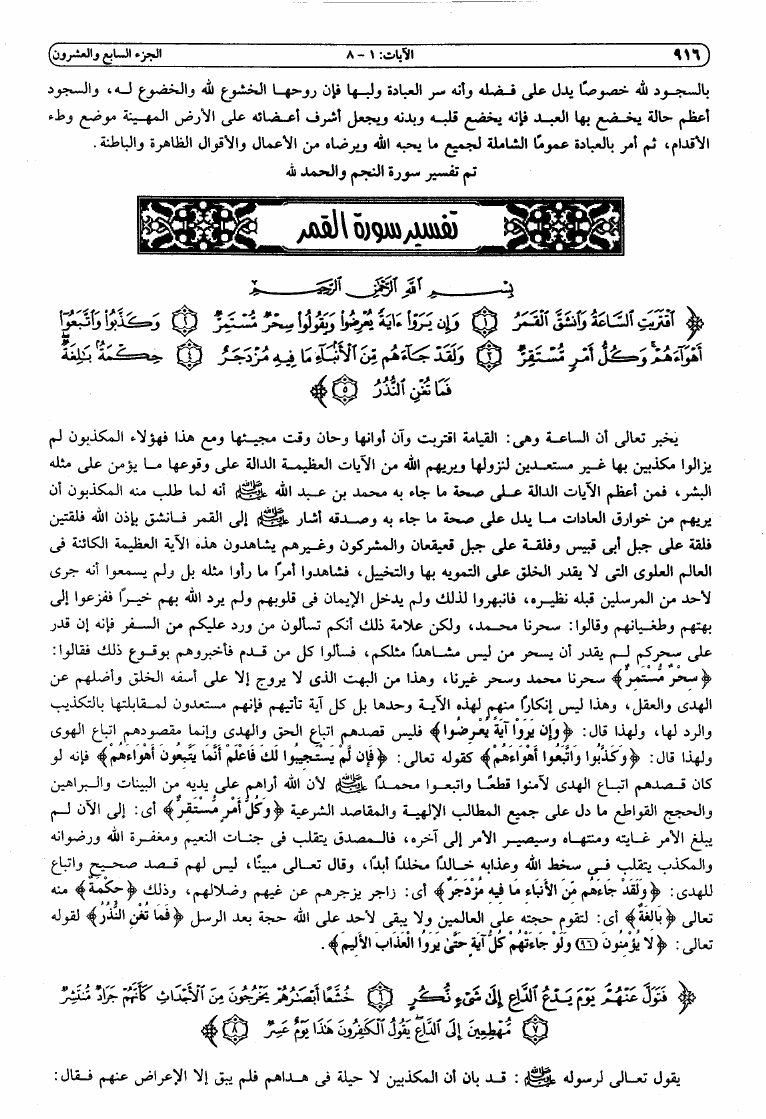 ٩١٦ الآيات: ١ - ٨ الجزء السابع والعشرون
بالسجود لله خصوصًا يدل على فضله وأنه سر العبادة ولبها فإن روحها الخشوع لله والخضوع له، والسجود
أعظم حالة يخضع بها العبد فإنه يخضع قلبه وبدنه ويجعل أشرف أعضائه على الأرض المهينة موضع وطء
الأقدام، ثم أمر بالعبادة عمومًا الشاملة لجميع ما يحبه الله ويرضاه من الأعمال والأقوال الظاهرة والباطنة.
تم تفسير سورة النجم والحمد لله
تفسير سورة القمر
بِسْمِ اللَّهِ الرَّحْمَٰنِ الرَّحِيمِ
﴿ اقْتَرَبَتِ السَّاعَةُ وَانشَقَّ الْقَمَرُ ١ وَإِن يَرَوْا ءَايَةً يُعْرِضُوا وَيَقُولُوا سِحْرٌ مُّسْتَمِرٌّ ٢ وَكَذَّبُوا وَاتَّبَعُوا
أَهْوَاءَهُمْ وَكُلُّ أَمْرٍ مُّسْتَقِرٌّ ٣ وَلَقَدْ جَاءَهُم مِّنَ الْأَنبَاءِ مَا فِيهِ مُزْدَجَرٌ ٤ حِكْمَةٌ بَالِغَةٌ
فَمَا تُغْنِ النُّذُرُ ٥ ﴾
يخبر تعالى أن الساعة وهى: القيامة اقتربت وآن أوانها وحان وقت مجيئها ومع هذا فهؤلاء المكذبون لم
يزالوا مكذبين بها غير مستعدين لنزولها ويريهم الله من الآيات العظيمة الدالة على وقوعها ما يؤمن على مثله
البشر، فمن أعظم الآيات الدالة على صحة ما جاء به محمد بن عبد الله ﷺ أنه لما طلب منه المكذبون أن
يريهم من خوارق العادات ما يدل على صحة ما جاء به وصدقه أشار ﷺ إلى القمر فانشق بإذن الله فلقتين
فلقة على جبل أبى قبيس وفلقة على جبل قعيقعان والمشركون وغيرهم يشاهدون هذه الآية العظيمة الكائنة فى
العالم العلوى التى لا يقدر الخلق على التمويه بها والتخييل، فشاهدوا أمرًا ما رأوا مثله بل ولم يسمعوا أنه جرى
لأحد من المرسلين قبله نظيره، فانبهروا لذلك ولم يدخل الإيمان فى قلوبهم ولم يرد الله بهم خيرًا ففزعوا إلى
بهتهم وطغيانهم وقالوا: سحرنا محمد، ولكن علامة ذلك أنكم تسألون من ورد عليكم من السفر فإنه إن قدر
على سحركم لم يقدر أن يسحر من ليس مشاهدًا مثلكم، فسألوا كل من قدم فأخبروهم بوقوع ذلك فقالوا:
﴿سِحْرٌ مُّسْتَمِرٌّ﴾ سحرنا محمد وسحر غيرنا، وهذا من البهت الذى لا يروج إلا على أسفه الخلق وأضلهم عن
الهدى والعقل، وهذا ليس إنكارًا منهم لهذه الآية وحدها بل كل آية تأتيهم فإنهم مستعدون لمقابلتها بالتكذيب
والرد لها، ولهذا قال: ﴿وَإِن يَرَوْا آيَةً يُعْرِضُوا﴾ فليس قصدهم اتباع الحق والهدى وإنما مقصودهم اتباع الهوى
ولهذا قال: ﴿وَكَذَّبُوا وَاتَّبَعُوا أَهْوَاءَهُمْ﴾ كقوله تعالى: ﴿فَإِن لَّمْ يَسْتَجِيبُوا لَكَ فَاعْلَمْ أَنَّمَا يَتَّبِعُونَ أَهْوَاءَهُمْ﴾ فإنه لو
كان قصدهم اتباع الهدى لآمنوا قطعًا واتبعوا محمدًا ﷺ لأن الله أراهم على يديه من البينات والبراهين
والحجج القواطع ما دل على جميع المطالب الإلهية والمقاصد الشرعية ﴿وَكُلُّ أَمْرٍ مُّسْتَقِرٌّ﴾ أى: إلى الآن لم
يبلغ الأمر غايته ومنتهاه وسيصير الأمر إلى آخره، فالمصدق يتقلب فى جنات النعيم ومغفرة الله ورضوانه
والمكذب يتقلب فى سخط الله وعذابه خالدًا مخلدًا أبدًا، وقال تعالى مبينًا، ليس لهم قصد صحيح واتباع
للهدى: ﴿وَلَقَدْ جَاءَهُم مِّنَ الأَنبَاءِ مَا فِيهِ مُزْدَجَرٌ﴾ أى: زاجر يزجرهم عن غيهم وضلالهم، وذلك ﴿حِكْمَةٌ﴾ منه
تعالى ﴿بَالِغَةٌ﴾ أى: لتقوم حجته على العالمين ولا يبقى لأحد على الله حجة بعد الرسل ﴿فَمَا تُغْنِ النُّذُرُ﴾ لقوله
تعالى: ﴿لا يُؤْمِنُونَ ٩٦ وَلَوْ جَاءَتْهُمْ كُلُّ آيَةٍ حَتَّىٰ يَرَوُا الْعَذَابَ الأَلِيمَ﴾.
﴿ فَتَوَلَّ عَنْهُمْ يَوْمَ يَدْعُ الدَّاعِ إِلَىٰ شَيْءٍ نُّكُرٍ ٦ خُشَّعًا أَبْصَارُهُمْ يَخْرُجُونَ مِنَ الْأَجْدَاثِ كَأَنَّهُمْ جَرَادٌ مُّنتَشِرٌ
٧ مُّهْطِعِينَ إِلَى الدَّاعِ يَقُولُ الْكَافِرُونَ هَٰذَا يَوْمٌ عَسِرٌ ٨ ﴾
يقول تعالى لرسوله ﷺ: قد بان أن المكذبين لا حيلة فى هداهم فلم يبق إلا الإعراض عنهم فقال: